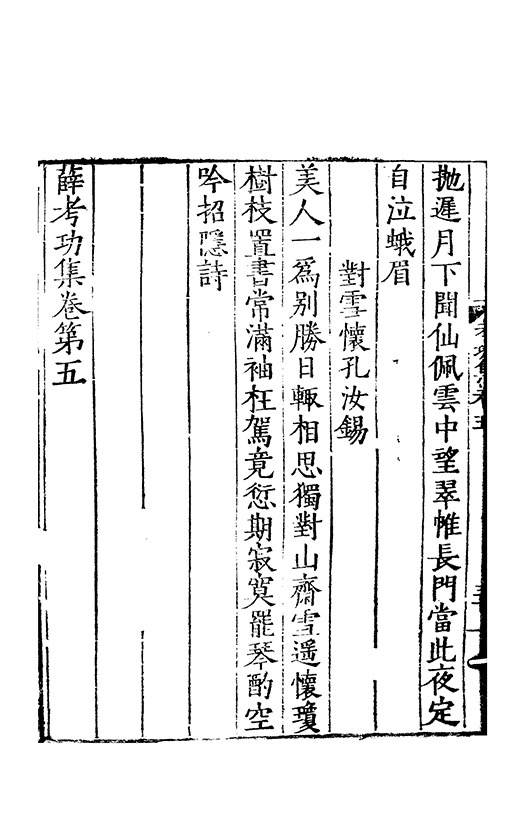 拋遲月下聞仙佩雲中望翠帷長門當此夜定
自泣蛾眉
對雪懷孔汝錫
美人一爲别勝日輙相思獨對山齋雪遥懷瓊
樹枝置書常滿袖枉駕竟愆期寂寞罷琴酌空
吟招隱詩
薛考功集卷第五